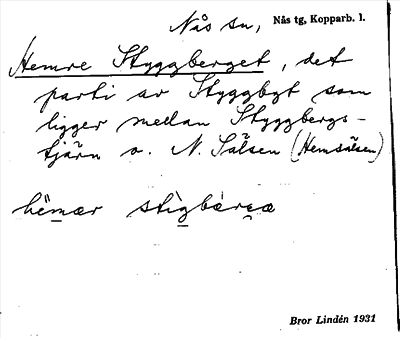 Nås sn, Nås tg, Kopparb. l.
Hemre Styggberget, det
parti av Styggbyt som
ligger mellan Styggbergs-
tjärn o. N. Sälsen (Hemsälsen)
Bror Lindén 1931